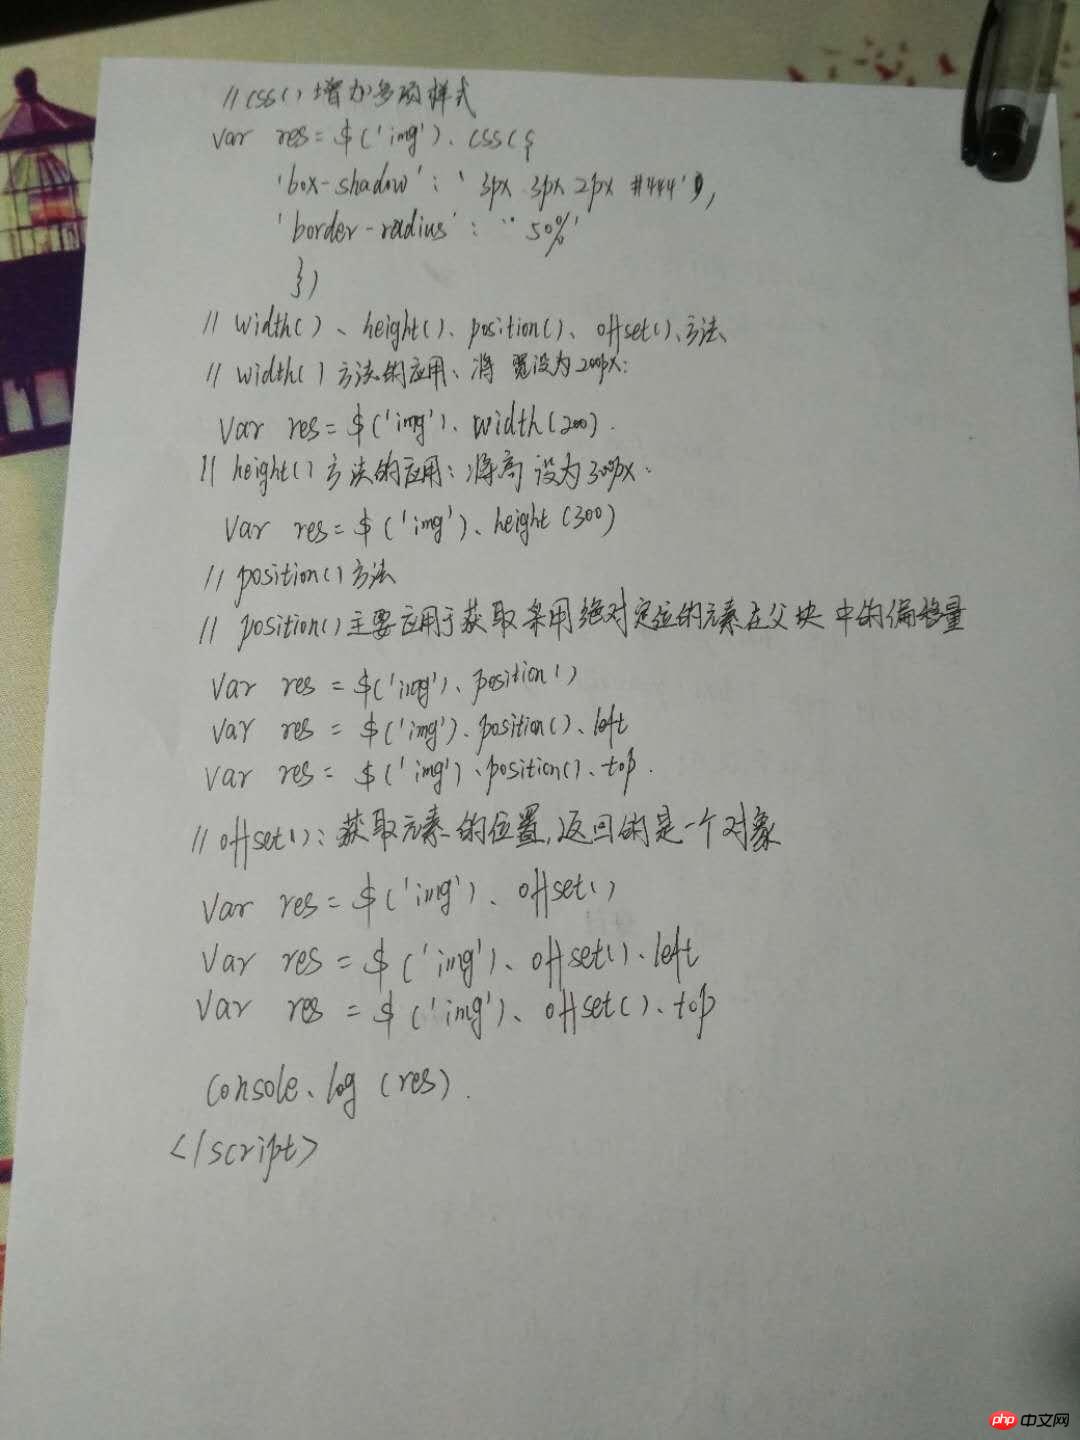 //css()增加多项样式
var res=$('img').css({
'box-shadow':'3px 3px 2px #444'),
'border-radius':'50%'
})
// width()、height()、position()、offset()、方法
// width()方法的应用、将宽设为200px:
Var res=$('img').width(200).
// height()方法的应用:将高设为300px.
Var res=$('img').height(300)
// position()方法
// position()主要应用于获取采用绝对定位的元素在父块中的偏移量
Var res=$('img').position()
Var res=$('img').position().left
Var res=$('img').position().top.
// offset():获取元素的位置,返回的是一个对象
Var res=$('img').offset()
Var res=$('img').offset().left
Var res=$('img').offset().top
Console.log(res).
</script>
php中文网